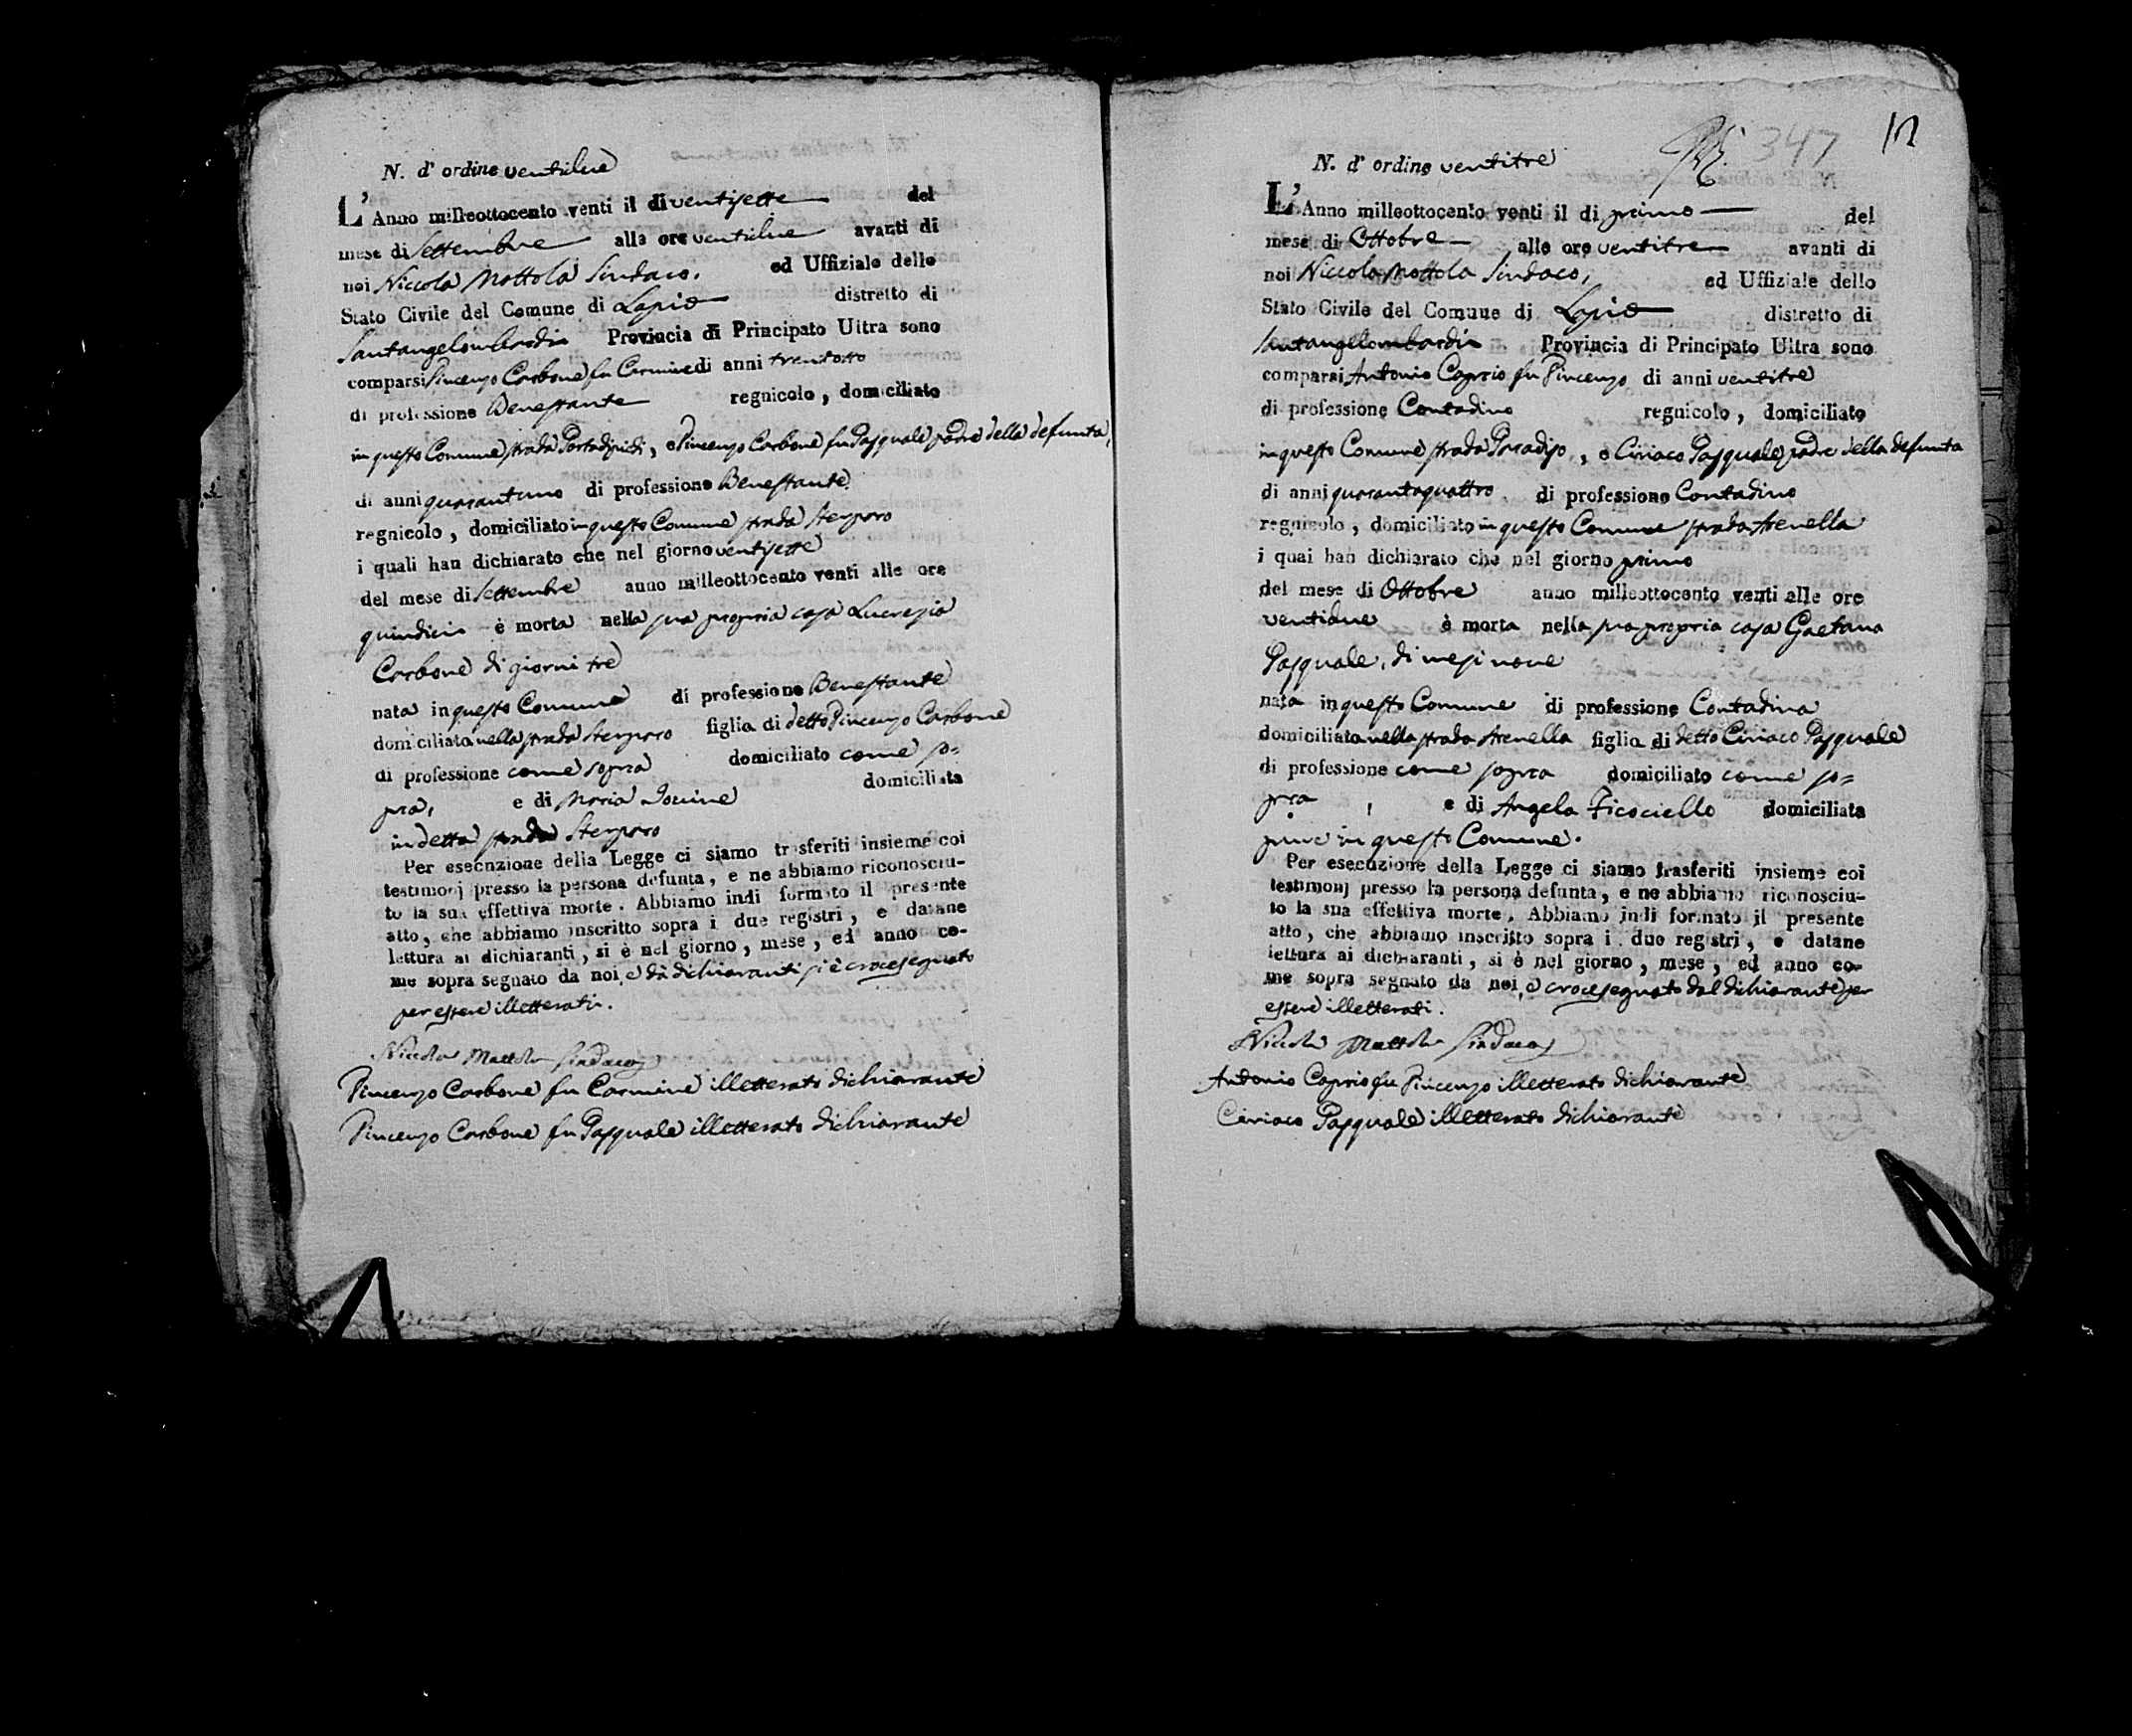 N. d' ordine ventidue
L' Anno milleottocento venti il di ventisette del
mese di Settembre alle ore ventidue avanti di
noi Niccola Mottola Sindaco, ed Uffiziale dello
Stato Civile del Comune di Lapio distretto di
Santangelombardi Provincia di Principato Ultra sono
comparsi Vincenzo Carbone fu Carmine di anni trentotto
di professione Benestante regnicolo, domiciliato
in questo Comune strada, e Vincenzo Carbone fu Pasquale padre della defunta,
di anni quarantuno di professione Benestante
regnicolo, domiciliato in questo Comune strada Sterparo
i quali han dichiarato che nel giorno ventisette
del mese di Settembre anno milleottocento venti alle ore
quindici è morta nella sua propria casa Lucrezia
Carbone di giorni tre
nata in questo Comune di professione Benestante
domiciliata nella strada Sterparo figlia di detto Vincenzo Carbone
di professione come sopra domiciliato come so=
pra, e di Maria Iovine domiciliata
in detta strada Sterparo
Per esecuzione della Legge ci siamo trasferiti insieme coi
testimonj presso la persona defunta, e ne abbiamo riconosciu-
to la sua effettiva morte. Abbiamo indi formato il presente
atto, che abbiamo inscritto sopra i due registri, e datane
lettura ai dichiaranti, si è nel giorno, mese, ed anno co-
me sopra segnato da noi, e dà dichiaranti si è crocesegnato
per essere illetterati.
Niccola Mottola Sindaco
Vincenzo Carbone fu Carmine illetterato dichiarante
Vincenzo Carbone fu Pasquale illetterato dichiarante
347 12
N. d' ordine ventitre
L' Anno milleottocento venti il di primo del
mese di Ottobre alle ore ventitre avanti di
noi Niccola Mottola Sindaco, ed Uffiziale dello
Stato Civile del Comune di Lapio distretto di
Santangelombardi Provincia di Principato Ultra sono
comparsi Antonio Caprio fu Vincenzo di anni ventitre
di professione Contadino regnicolo, domiciliato
in questo Comune strada Paradiso, e Ciriaco Pasquale padre della defunta
di anni quarantaquattro di professione Contadino
regnicolo, domiciliato in questo Comune strada Arenella
i quai han dichiarato che nel giorno primo
del mese di Ottobre anno milleottocento venti alle ore
ventidue è morta nella sua propria casa Gaetana
Pasquale, di mesi nove
nata in questo Comune di professione Contadina
domiciliata nella strada Arenella figlia di detto Ciriaco Pasquale
di professione come sopra domiciliato come so=
pra, e di Angela Ficociello domiciliata
pure in questo Comune.
Per esecuzione della Legge ci siamo trasferiti insieme coi
testimonj presso la persona defunta, e ne abbiamo riconosciu-
to la sua effettiva morte. Abbiamo indi formato il presente
atto, che abbiamo inscritto sopra i due registri, e datane
lettura ai dichiaranti, si è nel giorno, mese, ed anno co-
me sopra segnato da noi, e crocesegnato dal dichiarante per
essere illetterati.
Niccola Mottola Sindaco
Antonio Caprio fu Vincenzo illetterato dichiarante
Ciriaco Pasquale illetterato dichiarante